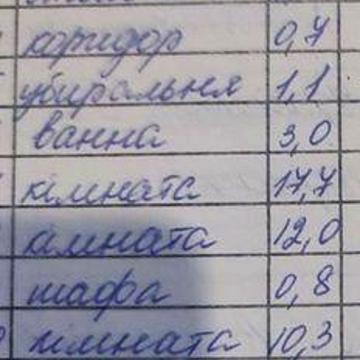 коридор 0,7
убиральня 1,1
ванна 3,0
кімната 17,7
кімната 12,0
шафа 0,8
кімната 10,3